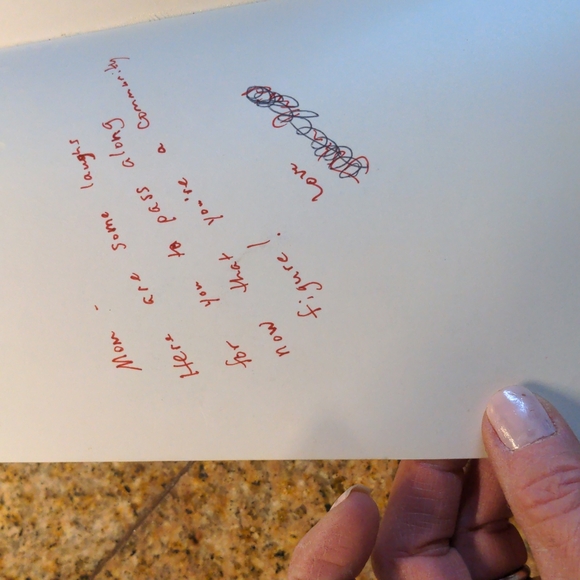 Mom -
Here are some laughs
for you to pass along
now that you're a community
figure!
Love